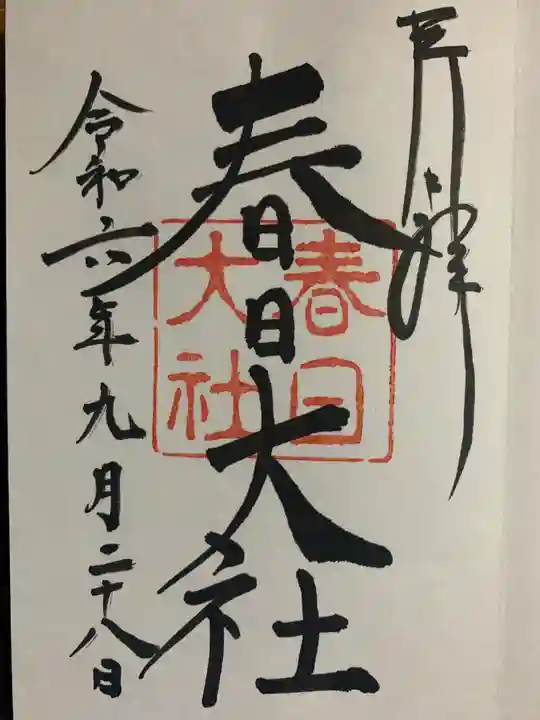 奉拝
春日大社
春日
大社
令和六年九月二十八日